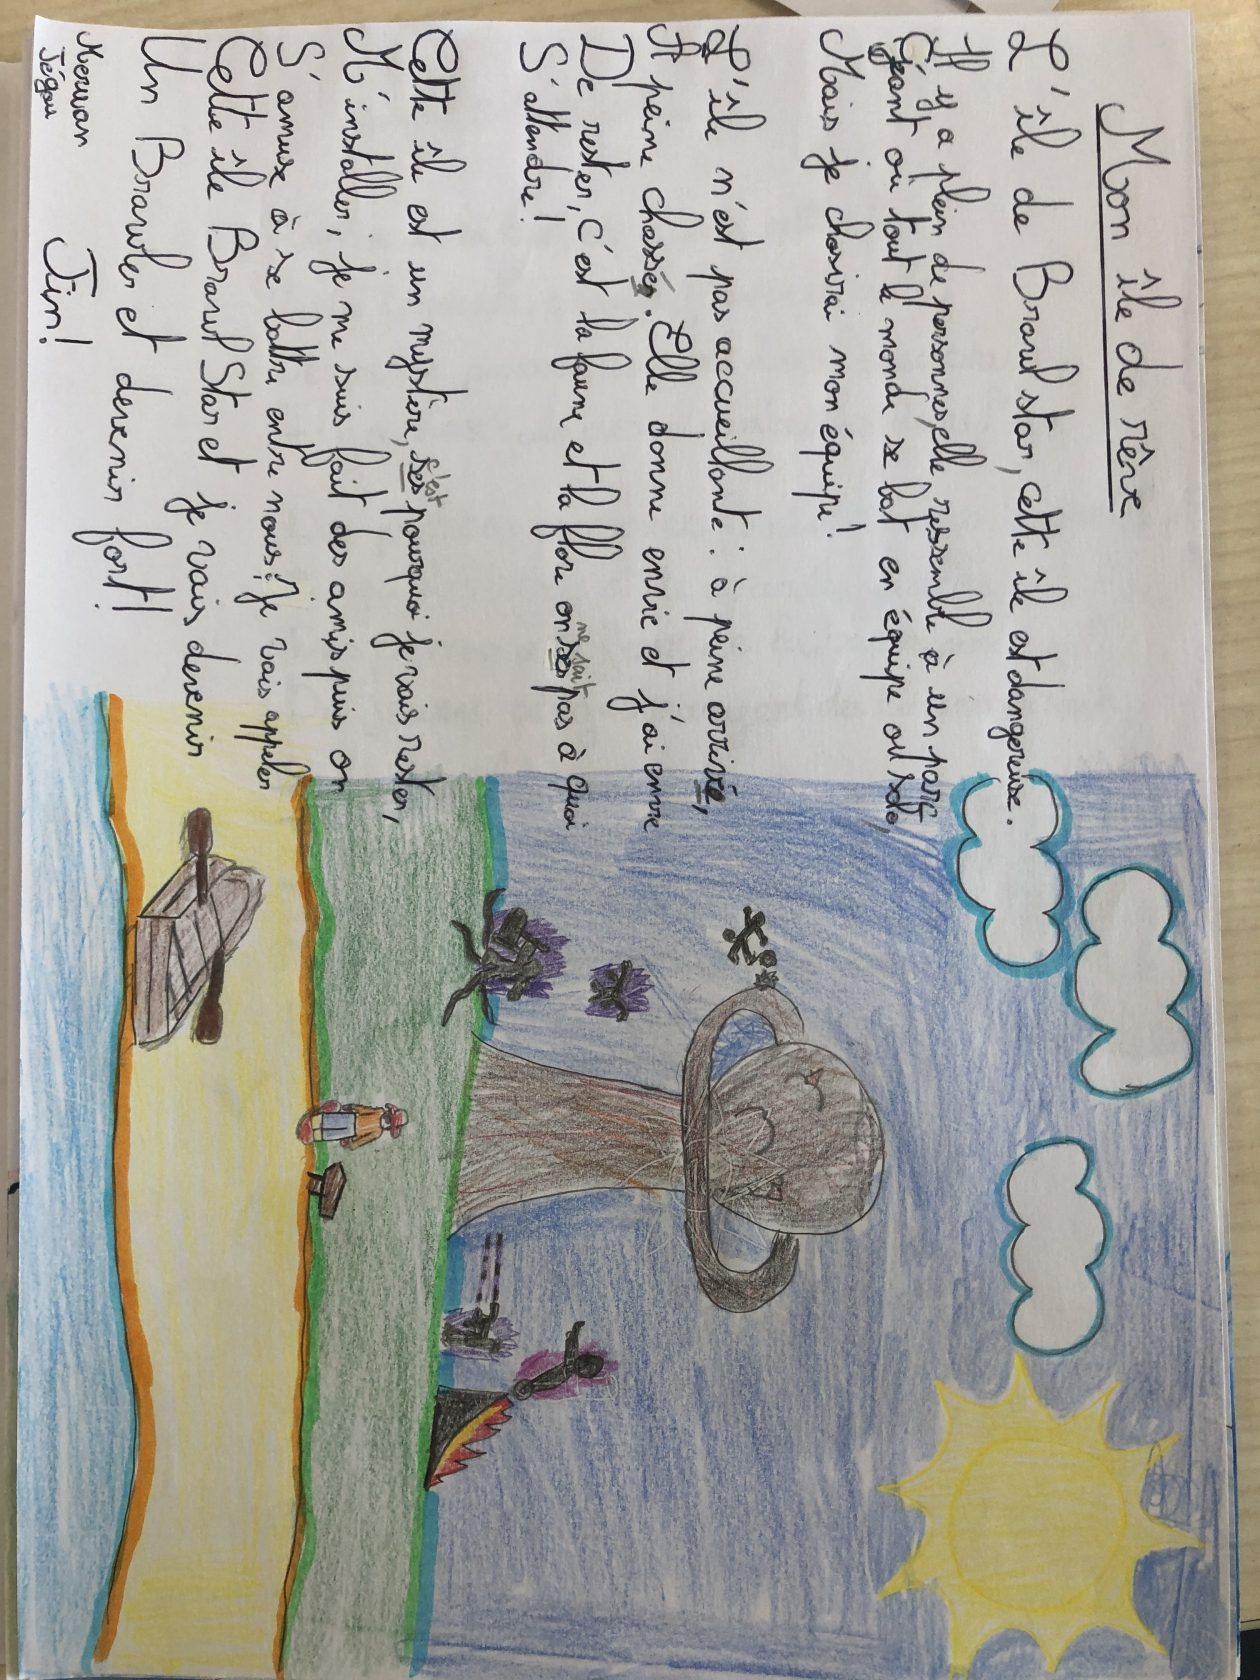 Mon île de rêve
L'île de Brawl star, cette île est dangereuse.
Il y a plein de personnes, elle ressemble à un parc
Géant où tout le monde se bat en équipe ou solo,
Mais je choisirai mon équipe!
L'île n'est pas accueillante : à peine arrivé,
A peine chassé. Elle donne envie et j'ai envie
De rester, c'est la faune et la flore on ne sait pas à quoi
S'attendre!
Cette île est un mystère, c'est pourquoi je vais rester,
M'installer, je me suis fait des amis puis on
S'amuse à se battre entre nous. Je vais appeler
Cette île Brawl Star et je vais devenir
Un Brawler et devenir fort!
Merwan
Jégou
Fin!